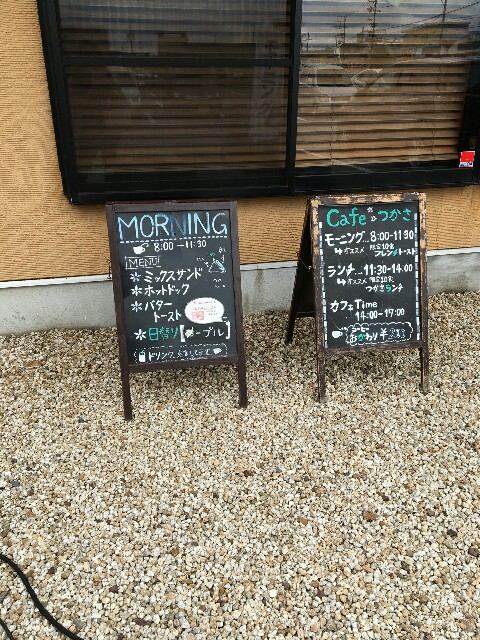 MORNING
8:00-11:30
MENU
* ミックスサンド
* ホットドック
* バター
トースト
* 日替り
ドリンク
Cafe つかさ
モーニング… 8:00-11:30
オススメ 限定10食
フレンチトースト
ランチ… 11:30-14:00
オススメ 限定10食
つかさランチ
カフェTime
14:00-17:00
おかわり